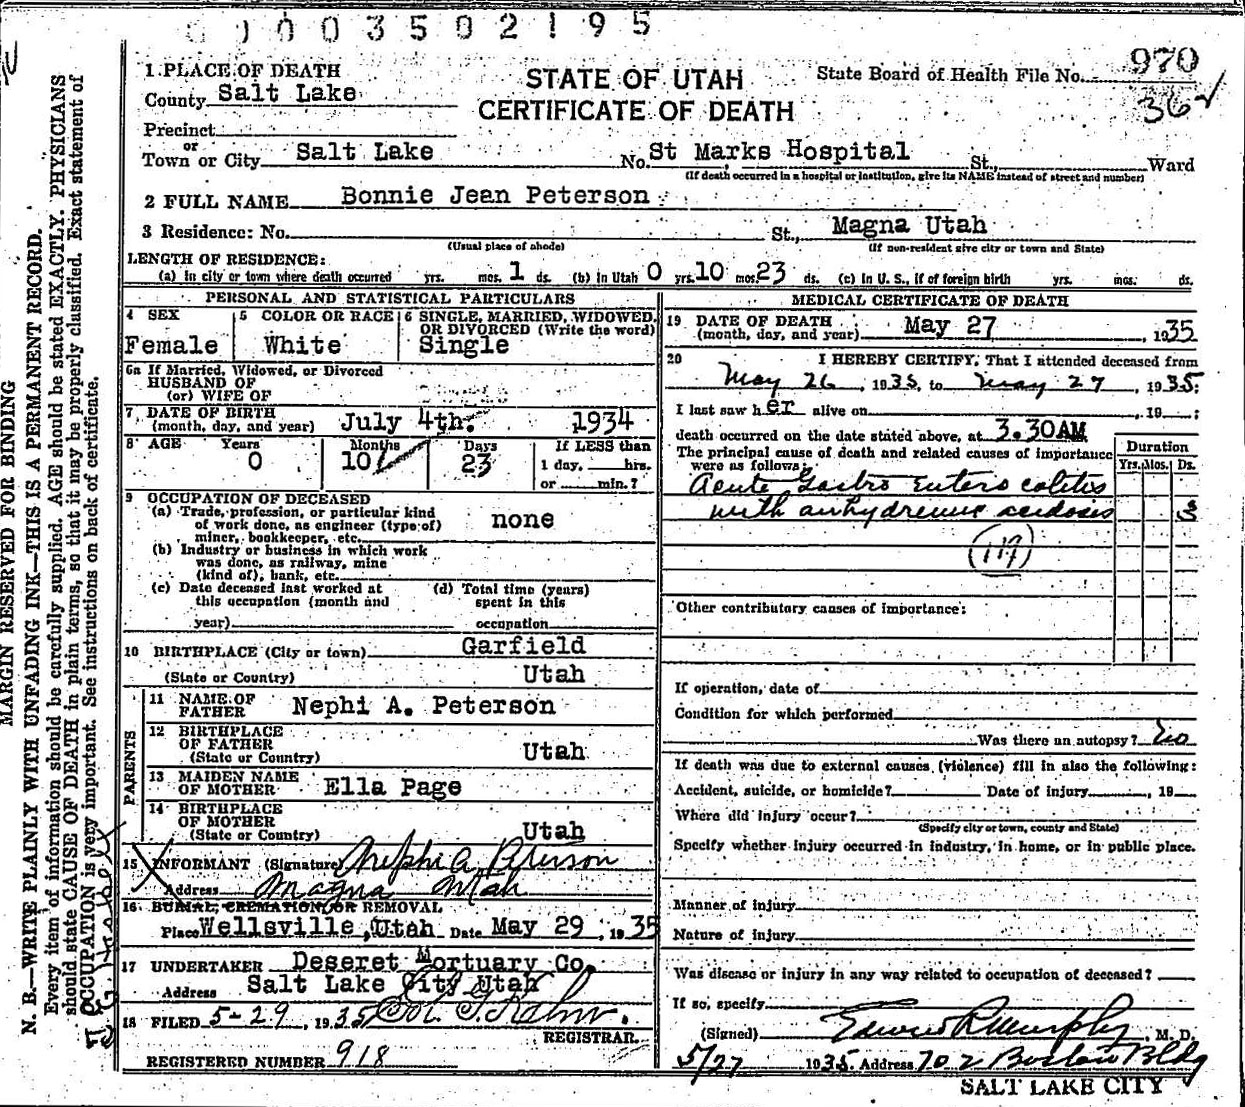 0 0 0 3 5 0 2 1 9 5
970
362
STATE OF UTAH
CERTIFICATE OF DEATH
State Board of Health File No.
1 PLACE OF DEATH
County Salt Lake
Precinct
or
Town or City Salt Lake No. St Marks Hospital St., Ward
(If death occurred in a hospital or institution, give its NAME instead of street and number)
2 FULL NAME Bonnie Jean Peterson
3 Residence: No. St., Magna Utah
(Usual place of abode) (If non-resident give city or town and State)
LENGTH OF RESIDENCE:
(a) In city or town where death occurred yrs. mos. 1 ds. (b) In Utah 0 yrs. 10 mos. 23 ds. (c) In U. S., if of foreign birth yrs. mos. ds.
PERSONAL AND STATISTICAL PARTICULARS
4 SEX
Female
5 COLOR OR RACE
White
6 SINGLE, MARRIED, WIDOWED,
OR DIVORCED (Write the word)
Single
6a If Married, Widowed, or Divorced
HUSBAND OF
(or) WIFE OF
7 DATE OF BIRTH
(month, day, and year) July 4th. 1934
8 AGE Years Months Days If LESS than
0 10 23 1 day, hrs.
or min.?
9 OCCUPATION OF DECEASED
(a) Trade, profession, or particular kind
of work done, as engineer (type of) none
miner, bookkeeper, etc.
(b) Industry or business in which work
was done, as railway, mine
(kind of), bank, etc.
(c) Date deceased last worked at (d) Total time (years)
this occupation (month and spent in this
year) occupation
10 BIRTHPLACE (City or town) Garfield
(State or Country) Utah
PARENTS
11 NAME OF
FATHER Nephi A. Peterson
12 BIRTHPLACE
OF FATHER
(State or Country) Utah
13 MAIDEN NAME
OF MOTHER Ella Page
14 BIRTHPLACE
OF MOTHER
(State or Country) Utah
15 INFORMANT (Signature) Nephi A Peterson
Address Magna Utah
16 BURIAL, CREMATION, OR REMOVAL
Place Wellsville, Utah Date May 29, 1935
17 UNDERTAKER Deseret Mortuary Co.
Address Salt Lake City Utah
18 FILED 5-29, 1935
REGISTRAR.
REGISTERED NUMBER 918
MEDICAL CERTIFICATE OF DEATH
19 DATE OF DEATH
(month, day, and year) May 27 1935
20 I HEREBY CERTIFY, That I attended deceased from
May 26, 1935, to May 27, 1935;
I last saw her alive on , 19 ;
death occurred on the date stated above, at 3.30AM
The principal cause of death and related causes of importance
were as follows:
Duration
Yrs. Mos. Ds.
Acute Gastro Entero colitis
with anhydremic acidosis 3
(119)
Other contributory causes of importance:
If operation, date of
Condition for which performed
Was there an autopsy? No
If death was due to external causes (violence) fill in also the following:
Accident, suicide, or homicide? Date of injury , 19
Where did injury occur?
(Specify city or town, county and State)
Specify whether injury occurred in industry, in home, or in public place.
Manner of injury
Nature of injury
Was disease or injury in any way related to occupation of deceased?
If so, specify
(Signed) Edwin R Murphy, M. D.
5/27 1935 Address 702 Boston Bldg
SALT LAKE CITY
MARGIN RESERVED FOR BINDING
N. B.—WRITE PLAINLY WITH UNFADING INK—THIS IS A PERMANENT RECORD.
Every item of information should be carefully supplied. AGE should be stated EXACTLY. PHYSICIANS
should state CAUSE OF DEATH in plain terms, so that it may be properly classified. Exact statement of
OCCUPATION is very important. See instructions on back of certificate.